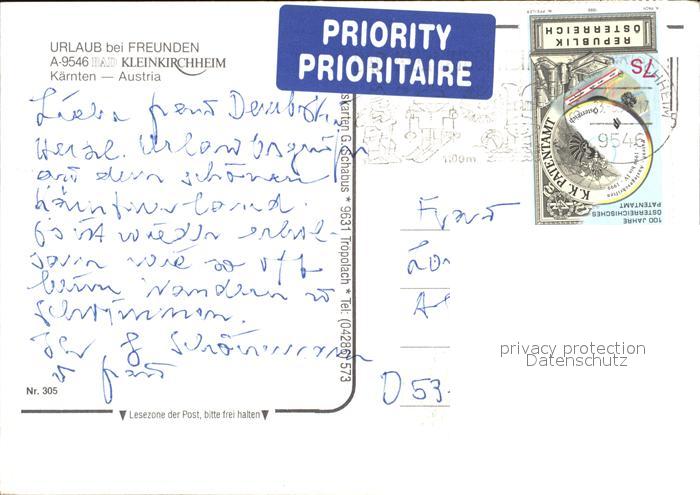 URLAUB bei FREUNDEN
A-9546 BAD KLEINKIRCHHEIM
Kärnten — Austria
PRIORITY
PRIORITAIRE
REPUBLIK
ÖSTERREICH
7S
K.K. PATENTAMT
100 JAHRE
ÖSTERREICHISCHES
PATENTAMT
9546
1.09m
Schabus * 9631 Tropolach * Tel: (04286) 573
Liebe Frau
Herzl. Urlaubsgrüße
aus dem schönen
Kärntnerland.
Es ist wieder erhol-
sam wie so oft
beim Wandern u
Schwimmen.
Ihr
u Frau
Frau
D 53
Nr. 305
Lesezone der Post, bitte frei halten
privacy protection
Datenschutz